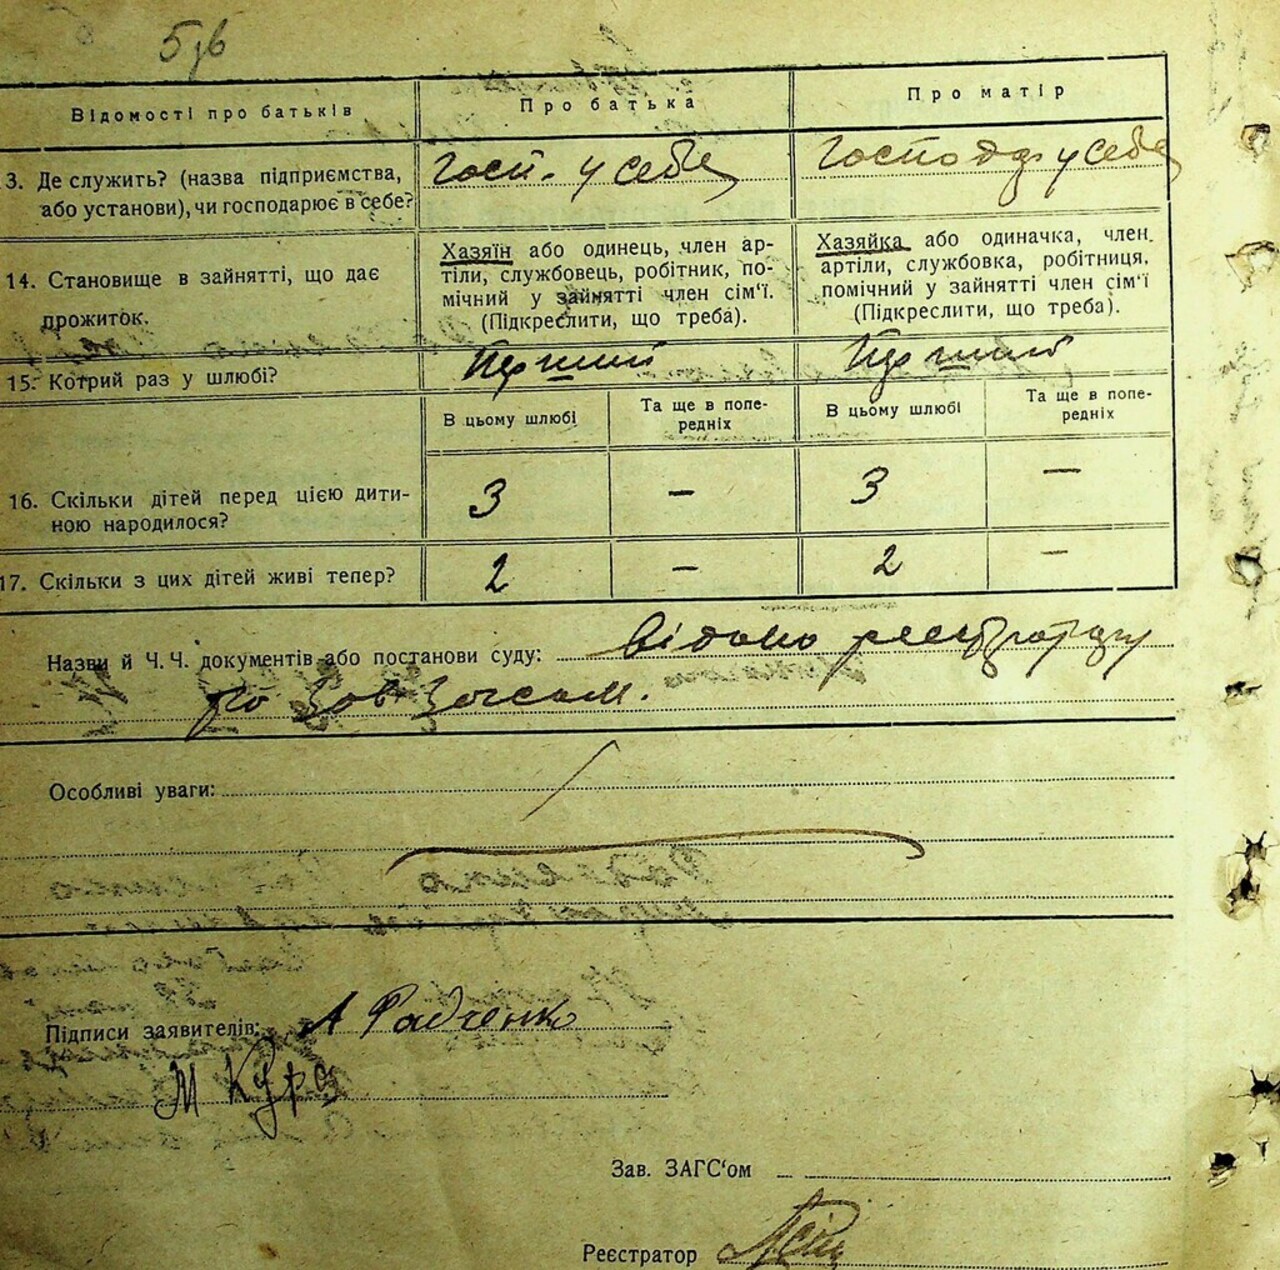 5зв
Відомості про батьків
Про батька
Про матір
3. Де служить? (назва підприємства,
або установи), чи господарює в себе?
Госп. у себе
Господ. у себе
14. Становище в зайнятті, що дає
прожиток.
Хазяїн або одинець, член ар-
тіли, службовець, робітник, по-
мічний у зайнятті член сім'ї.
(Підкреслити, що треба).
Хазяйка або одиначка, член
артіли, службовка, робітниця,
помічний у зайнятті член сім'ї
(Підкреслити, що треба).
15. Котрий раз у шлюбі?
Перший
Перший
В цьому шлюбі
Та ще в попе-
редніх
В цьому шлюбі
Та ще в попе-
редніх
16. Скільки дітей перед цією дити-
ною народилося?
3
—
3
—
17. Скільки з цих дітей живі тепер?
2
—
2
—
Назви й Ч. Ч. документів або постанови суду: Відомо реєстратору
Загсом.
Особливі уваги:
Підписи заявителів: А Радченко
М Кура
Зав. ЗАГС'ом
Реєстратор